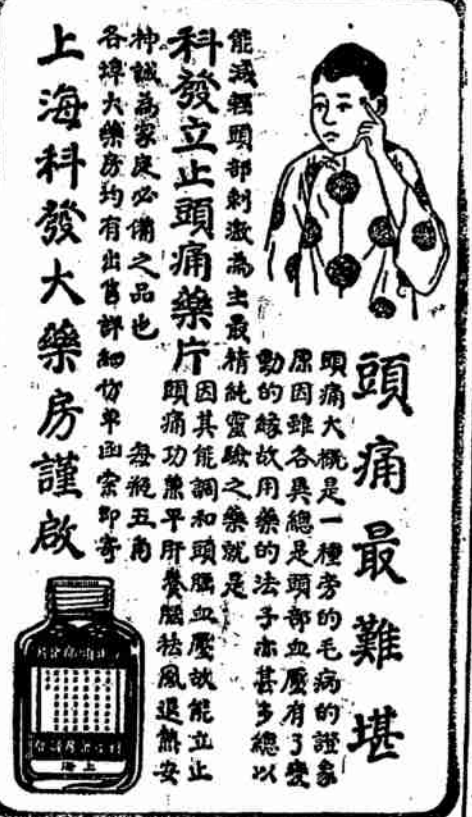 頭痛最難堪
頭痛大概是一種旁的毛病的證象
原因雖各異總是頭部血壓有了變
動的緣故用藥的法子亦甚多總以
能減輕頭部刺激為主最精純靈驗之藥就是
科發立止頭痛藥片
因其能調和頭腦血壓故能立止
頭痛功兼平肝養腦祛風退熱安
神誠為家庭必備之品也 每瓶五角
各埠大藥房均有出售詳細仿單函索即寄
上海科發大藥房謹啟
上海